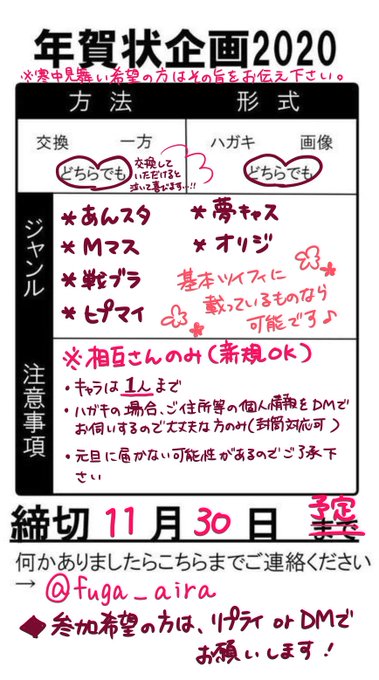 年賀状企画2020
※寒中見舞い希望の方はその旨をお伝え下さい。
方法
形式
交換 一方
ハガキ 画像
どちらでも
交換して
いただけると
泣いて喜びます…!!
どちらでも
ジャンル
*あんスタ
*夢キャス
*Mマス
*オリジ
*戦ブラ
*ヒプマイ
基本ツイフィに
載っているものなら
可能です♪
注意事項
※相互さんのみ(新規OK)
・キャラは1人まで
・ハガキの場合、ご住所等の個人情報をDMで
お伺いするので大丈夫な方のみ(封筒対応可)
・元旦に届かない可能性があるのでご了承下
さい
予定
締切 11月30日まで
何かありましたらこちらまでご連絡ください
→ @fuga_aira
◆参加希望の方は、リプライorDMで
お願いします!